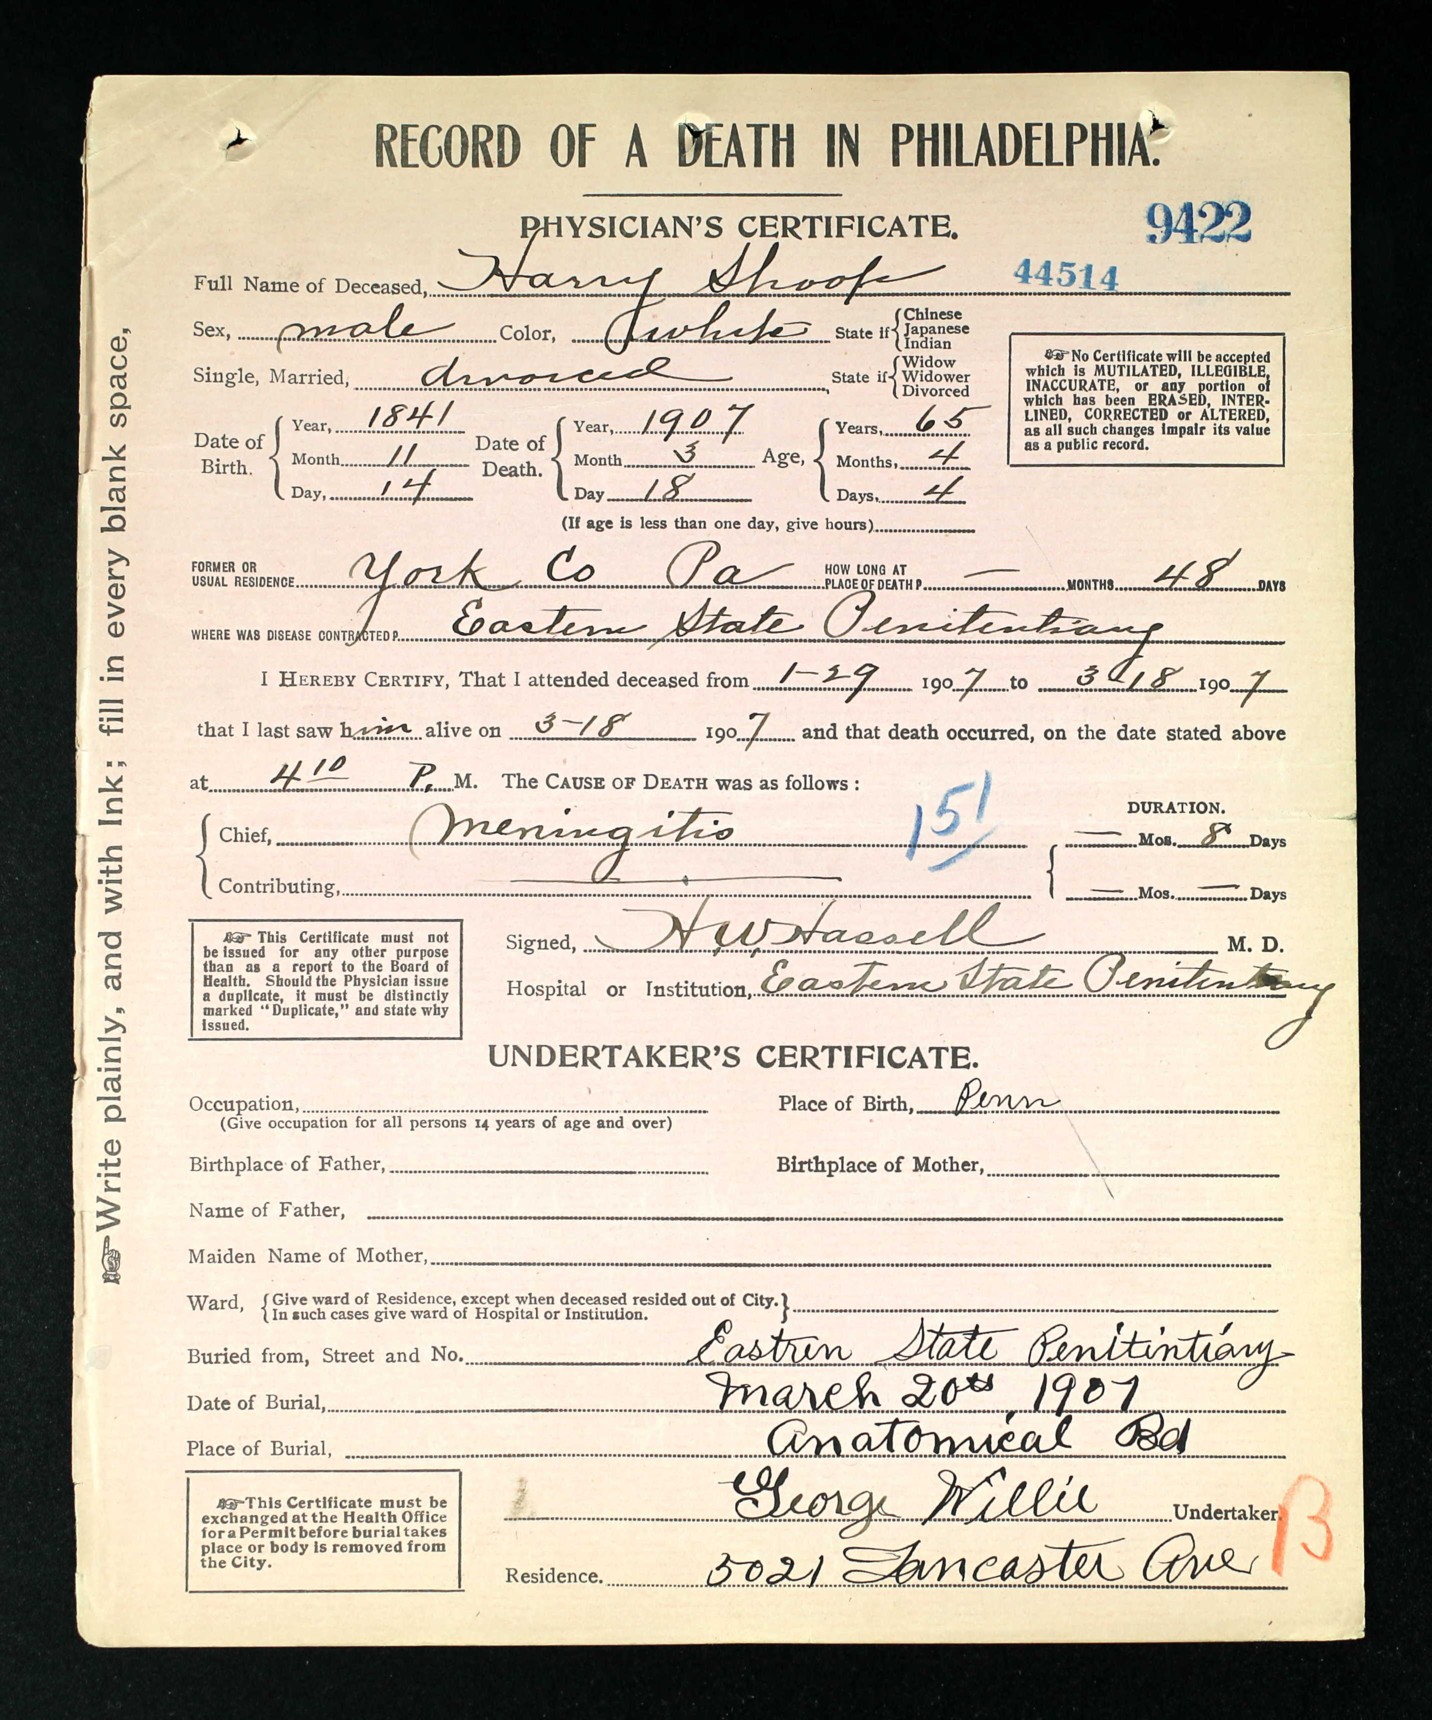 RECORD OF A DEATH IN PHILADELPHIA.
PHYSICIAN'S CERTIFICATE.
9422
44514
Full Name of Deceased, Harry Shoop
Sex, male Color, white State if { Chinese Japanese Indian
Single, Married, divorced State if { Widow Widower Divorced
☞ No Certificate will be accepted
which is MUTILATED, ILLEGIBLE,
INACCURATE, or any portion of
which has been ERASED, INTER-
LINED, CORRECTED or ALTERED,
as all such changes impair its value
as a public record.
Date of Birth. Year, 1841 Month 11 Day, 14
Date of Death. Year, 1907 Month 3 Day 18
Age, Years, 65 Months, 4 Days, 4
(If age is less than one day, give hours)
FORMER OR USUAL RESIDENCE York Co Pa HOW LONG AT PLACE OF DEATH? — MONTHS 48 DAYS
WHERE WAS DISEASE CONTRACTED? Eastern State Penitentiary
I HEREBY CERTIFY, That I attended deceased from 1-29 1907 to 3-18 1907
that I last saw him alive on 3-18 1907 and that death occurred, on the date stated above
at 4 10 P. M. The CAUSE OF DEATH was as follows:
151
DURATION.
Chief, Meningitis — Mos. 8 Days
Contributing, — — Mos. — Days
☞ This Certificate must not
be issued for any other purpose
than as a report to the Board of
Health. Should the Physician issue
a duplicate, it must be distinctly
marked "Duplicate," and state why
issued.
Signed, H.W. Hassell M. D.
Hospital or Institution, Eastern State Penitentiary
UNDERTAKER'S CERTIFICATE.
Occupation, Place of Birth, Penn
(Give occupation for all persons 14 years of age and over)
Birthplace of Father, Birthplace of Mother,
Name of Father,
Maiden Name of Mother,
Ward, { Give ward of Residence, except when deceased resided out of City. In such cases give ward of Hospital or Institution. }
Buried from, Street and No. Eastren State Penitintiary
Date of Burial, March 20th, 1907
Place of Burial, Anatomical Bd
☞ This Certificate must be
exchanged at the Health Office
for a Permit before burial takes
place or body is removed from
the City.
George Willie Undertaker.
B
Residence. 5021 Lancaster Ave
☞ Write plainly, and with Ink; fill in every blank space,